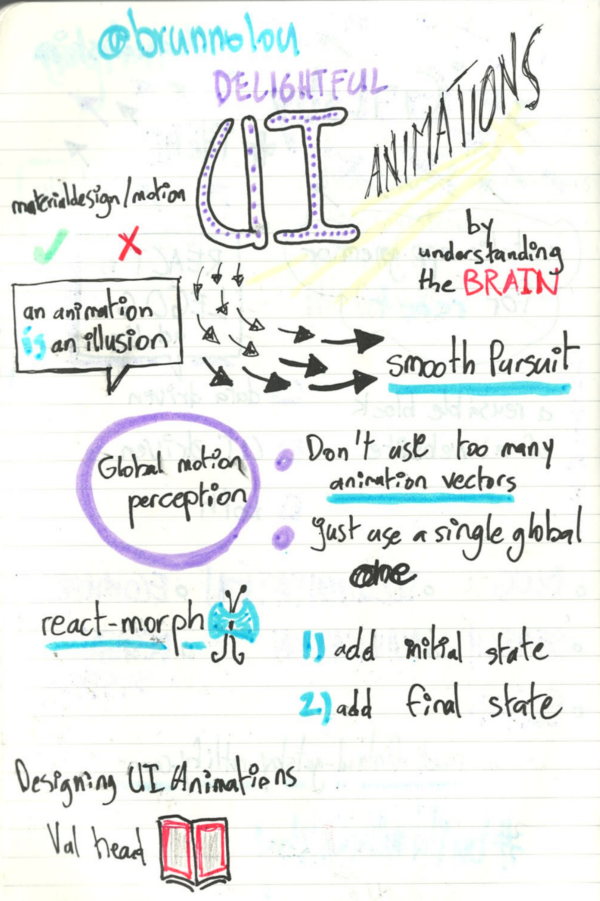 @brunnolou
DELIGHTFUL
UI
ANIMATIONS
materialdesign/motion
✓ X
by
understanding
the BRAIN
an animation
is an illusion
smooth Pursuit
Global motion
perception
Don't use too many
animation vectors
Just use a single global
one
react-morph
1) add initial state
2) add final state
Designing UI Animations
Val head